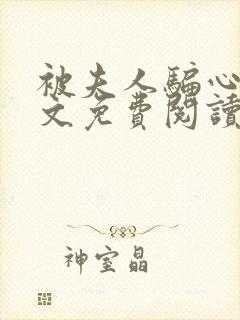 被夫人騙心
文免費閱讀
神室晶